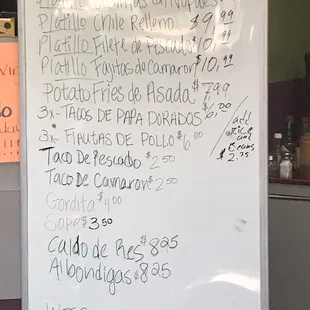 Platillo con Nopales
Platillo Chile Relleno $9.99
Platillo Filete de Pescado $10.99
Platillo Fajitas de Camaron $10.99
Potato Fries de Asada $7.99
3x- TACOS DE PAPA DORADOS $6.00
3x- Flautas DE POLLO $6.00
add
Rice
and
Beans
$2.75
Taco De Pescado $2.50
Taco De Camaron $2.50
Gordita $4.00
Sope $3.50
Caldo de Res $8.25
Albondigas $8.25